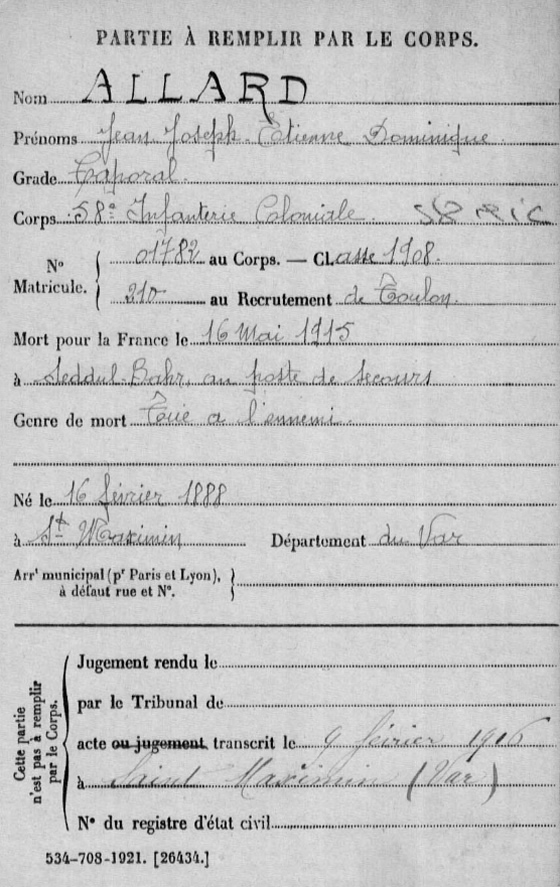 PARTIE À REMPLIR PAR LE CORPS.
Nom ALLARD
Prénoms Jean Joseph Etienne Dominique
Grade Caporal
Corps 58e Infanterie Coloniale 58 RIC
N° Matricule. 01782 au Corps. — CLasse 1908.
210 au Recrutement de Toulon.
Mort pour la France le 16 Mai 1915
à Seddul-Bahr, au poste de secours
Genre de mort Tué a l'ennemi.
Né le 16 février 1888
à St Maximin Département du Var
Arrt municipal (pr Paris et Lyon),
à défaut rue et N°.
Cette partie n'est pas à remplir par le Corps.
Jugement rendu le
par le Tribunal de
acte ou jugement transcrit le 9 février 1916
à Saint Maximin (Var)
N° du registre d'état civil
534-708-1921. [26434.]